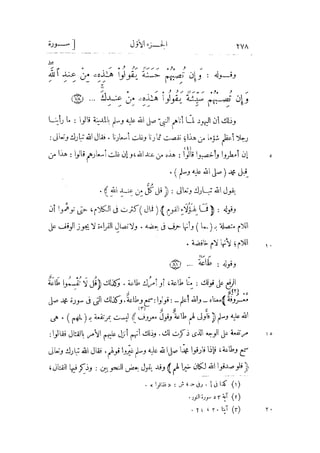 ٢٧٨ الجزء الأول [ سورة
وقوله : وَإِن تُصِبْهُمْ حَسَنَةٌ يَقُولُوا هَٰذِهِۦ مِنْ عِندِ ٱللَّهِ
وَإِن تُصِبْهُمْ سَيِّئَةٌ يَقُولُوا هَٰذِهِۦ مِنْ عِندِكَ ... (٧٨)
وذلك أن اليهود لمّا أتاهم النبىّ صلى الله عليه وسلم بالمدينة قالوا : ما رأينا
رجلا أعظم شؤما من هذا؛ نقصت ثمارنا وغلت أسعارنا . فقال الله تبارك وتعالى :
٥ إن أمطروا وأخصبوا قالوا : هذه من عند الله ، وإن غلت أسعارهم قالوا : هذا من
قبل محمد (صلى الله عليه وسلم) .
يقول الله تبارك وتعالى : ﴿ قل كلّ من عند الله ﴾ .
وقوله : ﴿ فمال هؤلاء القوم ﴾ (فمال) كثرت فى الكلام، حتى توهموا أن
اللام متصلة بـ (ـما) وأنها حرف فى بعضه . ولاتصال القراءة لا يجوز الوقف على
١٠ اللام؛ لأنها لام خافضة .
وقوله : طَاعَةٌ ... (٨١)
الرفع على قولك : منّا طاعة، أو أمرك طاعة . وكذلك ﴿ قل لا تُقْسِموا طاعةٌ
معروفةٌ ﴾ معناه ـ والله أعلم ـ : قولوا : سمع وطاعة . وكذلك التى فى سورة محمد صلى
الله عليه وسلم ﴿ فأولى لهم طاعةٌ وقولٌ معروف ﴾ ليست بمرتفعة بـ (ـلهم) . هى
١٥ مرتفعة على الوجه الذى ذكرت لك . وذلك أنهم أنزل عليهم الأمر بالقتال فقالوا :
سمع وطاعة، فإذا فارقوا محمدا صلى الله عليه وسلم غيّروا قولهم . فقال الله تبارك وتعالى
﴿ فلو صدقوا الله لكان خيرا لهم ﴾ وقد يقول بعض النحويين : وذكر فيها القتال،
(٢) آية ٥٣ سورة النور .
٢٠ (٣) آيتا ٢٠ ، ٢١ .